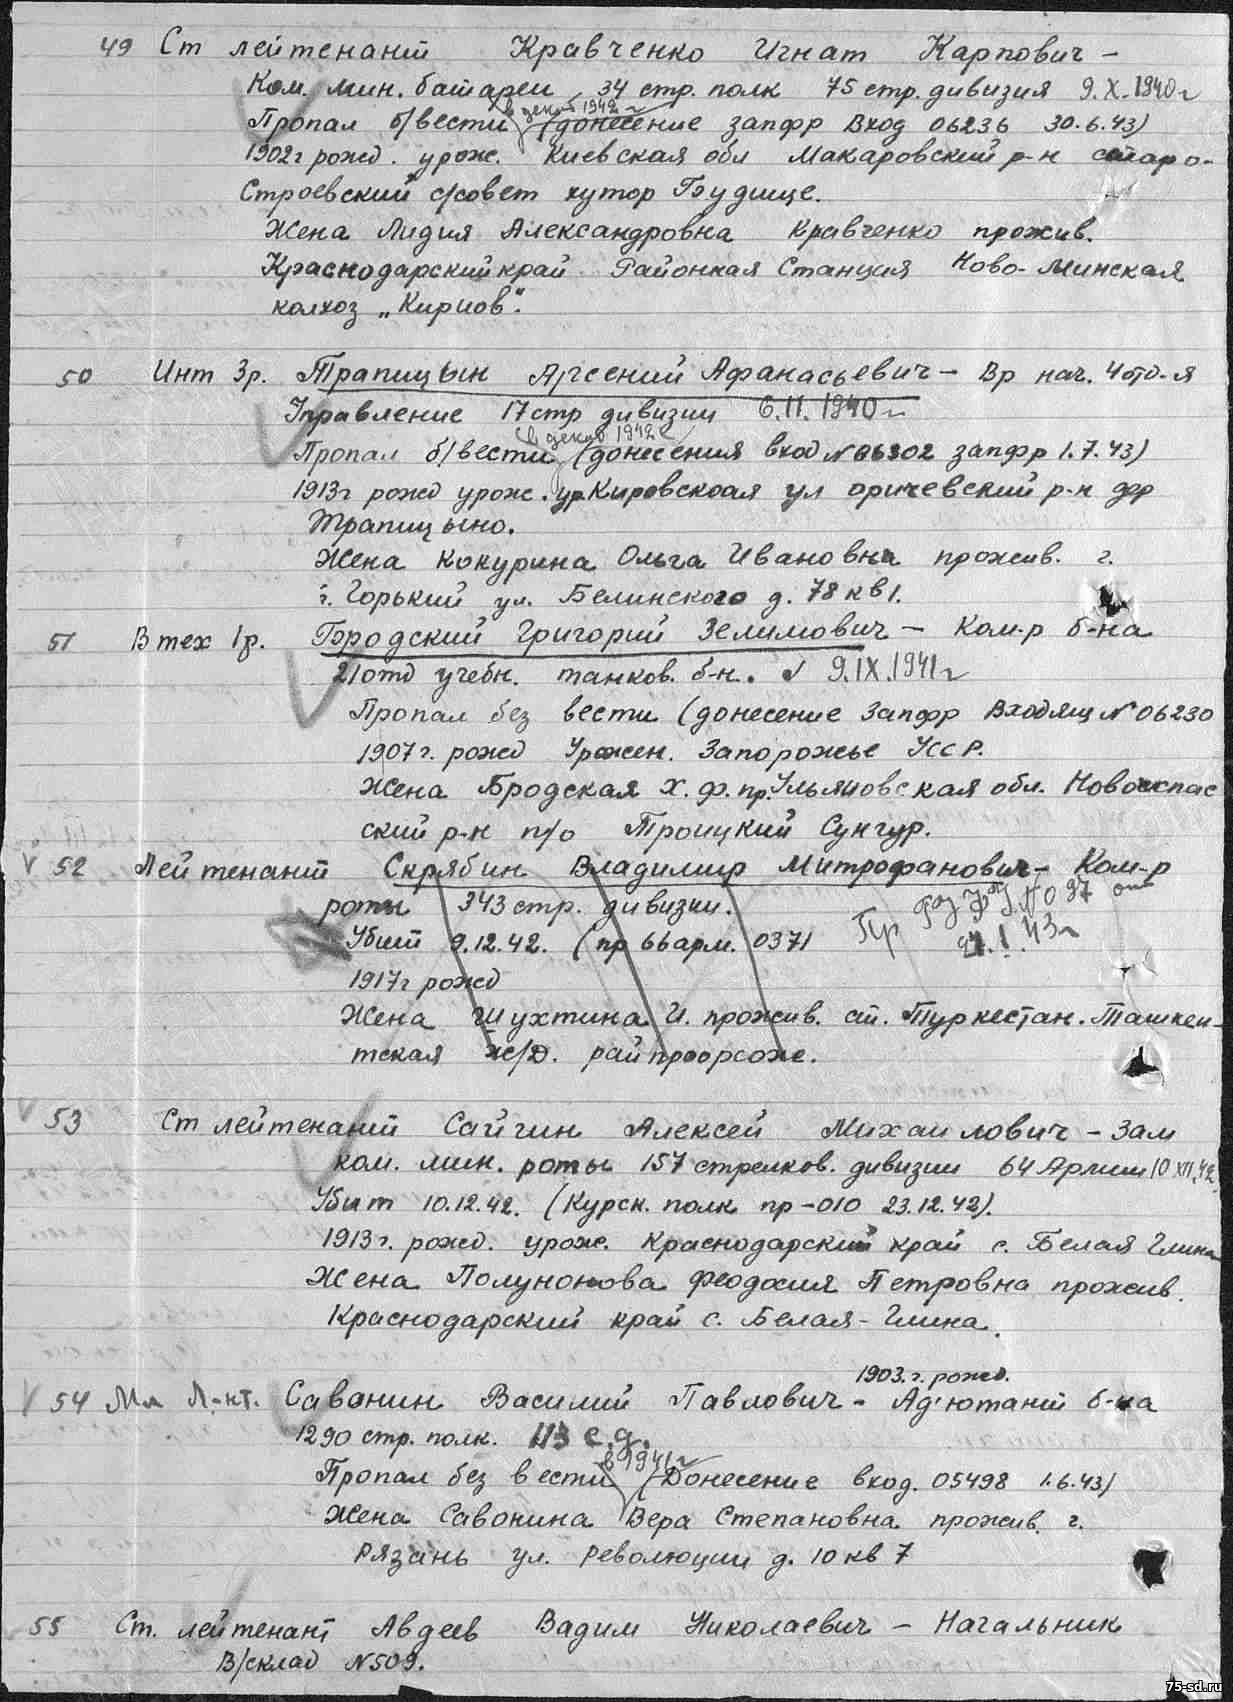 49 Ст лейтенант Кравченко Игнат Карпович –
Ком. мин. батареи 34 стр. полк 75 стр. дивизия 9.X.1940г
в декаб 1942г
Пропал б/вести (донесение запфр Вход 06236 30.6.43)
1902г рожд. урож. Киевская обл Макаровский р-н старо-
Строевский с/совет хутор Будище.
Жена Лидия Александровна Кравченко прожив.
Краснодарский край Станция Ново-Минская
колхоз „Киров".
50 Инт 3р. Трапицын Арсений Афанасьевич – Вр нач. 4отд-я
Управление 17стр дивизии 6.11.1940г
в декаб 1942г
Пропал б/вести (донесения вход №06302 запфр 1.7.43)
1913г рожд урож. Кировская ул оричевский р-н дер
Трапицыно.
Жена Кокурина Ольга Ивановна прожив. г.
г. Горький ул. Белинского д. 78 кв 1.
51 В тех 1р. Бродский Григорий Зелимович – Ком-р б-на
21отд учебн. танков. б-н. 9.IX.1941г
Пропал без вести (донесение Запфр Входящ №06230
1907г. рожд Урожен. Запорожье УССР.
Жена Бродская Х.Ф. пр. Ульяновская обл. Новоспас
ский р-н п/о Троицкий Сунгур.
V 52 Лейтенант Скрябин Владимир Митрофанович – Ком-р
роты 343 стр. дивизии.
Убит 9.12.42. (пр 66арм. 0371
Пр ГУФ №097 от 24.I.43г
1917г рожд
Жена Шухтина И. прожив. ст. Туркестан. Ташкен-
тская ж/д.
V 53 Ст лейтенант Сайгин Алексей Михайлович – Зам
ком. мин. роты 157 стрелков. дивизии 64 Армии 10 XII.42
Убит 10.12.42. (Курск. полк пр-010 23.12.42).
1913г. рожд. урож. Краснодарский край с. Белая Глина
Жена Полунонова Феодосия Петровна прожив.
Краснодарский край с. Белая-Глина.
1903.г. рожд.
V 54 Мл Л-нт. Савонин Василий Павлович – Ад'ютант б-на
1290 стр. полк. 113 с.д.
в 1941г
Пропал без вести (Донесение вход. 05498 1.6.43)
Жена Савонина Вера Степановна прожив. г.
Рязань ул. Революции д. 10 кв 7
55 Ст. лейтенант Авдеев Вадим Николаевич – Начальник
В/склад №509.
75-sd.ru